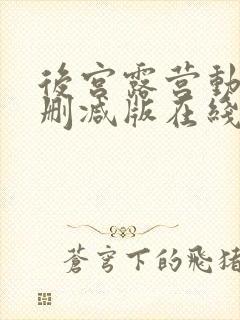 後宮露营動
删减版在綫
蒼穹下的飛猪